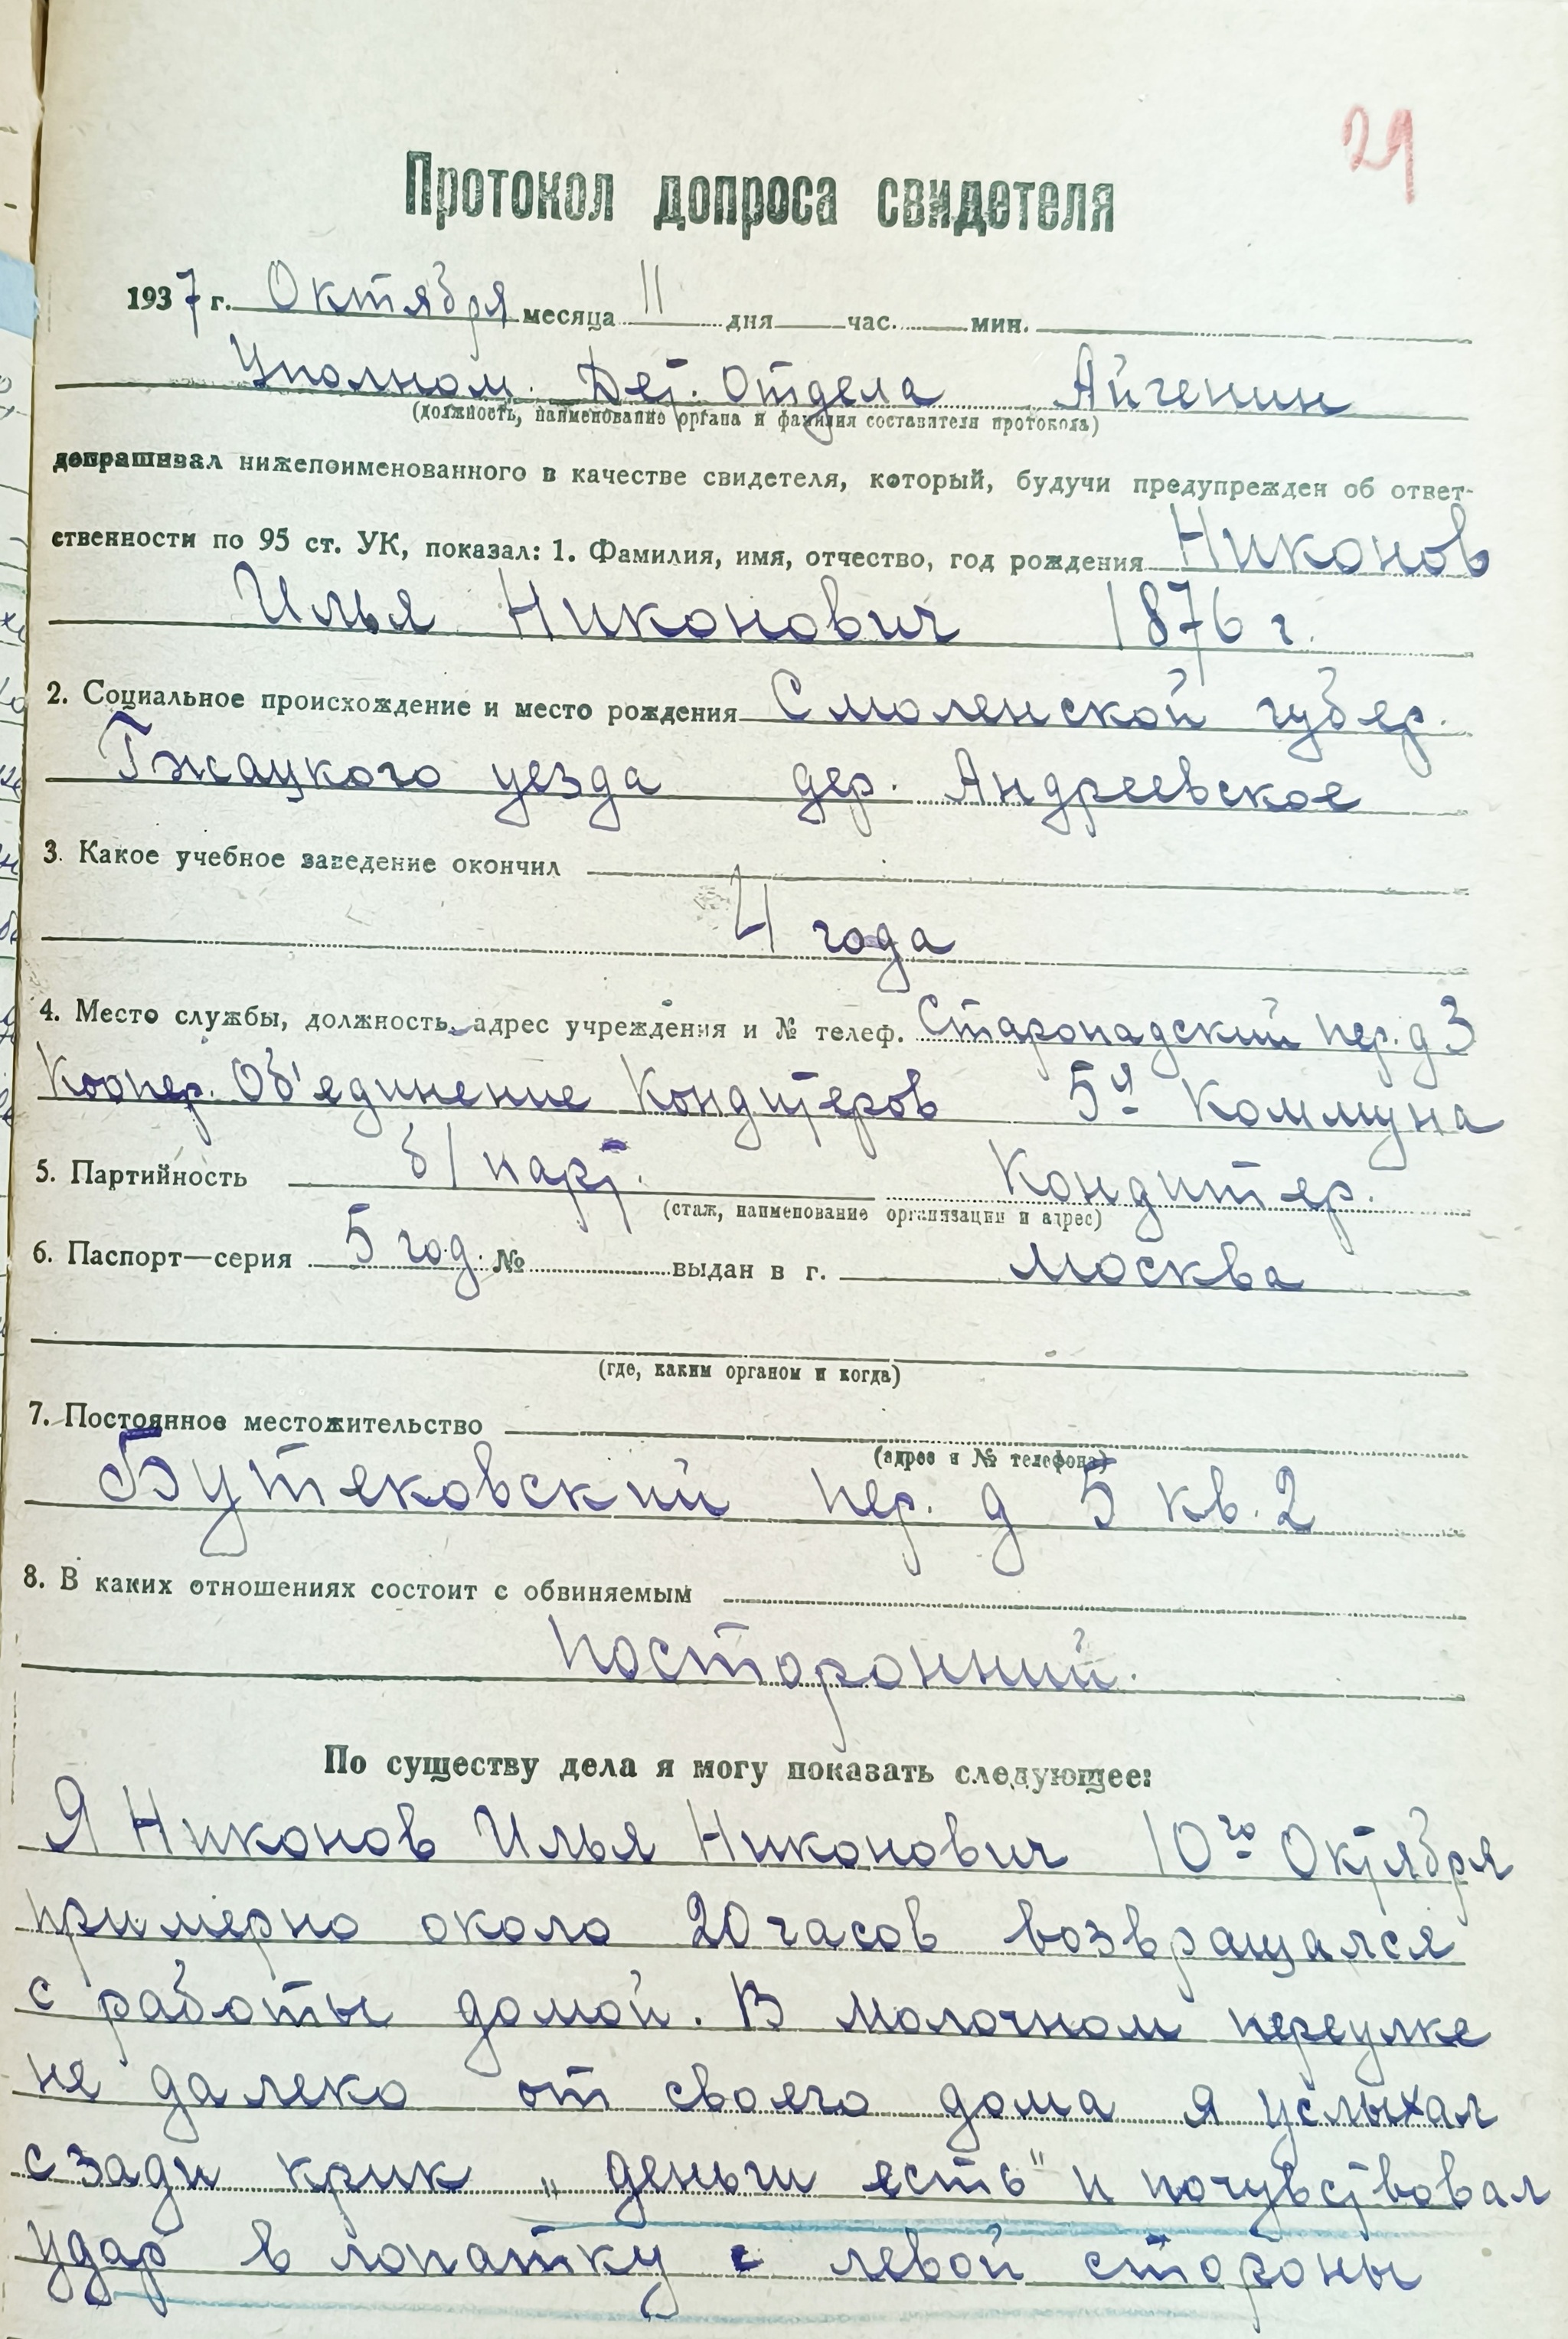 29
Протокол допроса свидетеля
1937 г. Октября месяца 11 дня час. мин.
Уполном. Дет. Отдела Айгенин
(должность, наименование органа и фамилия составителя протокола)
допрашивал нижепоименованного в качестве свидетеля, который, будучи предупрежден об ответ-
ственности по 95 ст. УК, показал: 1. Фамилия, имя, отчество, год рождения Никонов
Илья Никонович 1876 г.
2. Социальное происхождение и место рождения Смоленской губер.
Гжацкого уезда дер. Андреевское
3. Какое учебное заведение окончил
4 года
4. Место службы, должность, адрес учреждения и № телеф. Старопадский пер. д 3
Коопер. Об'единение Кондитеров 5я Коммуна
5. Партийность б/парт. Кондитер.
(стаж, наименование организации и адрес)
6. Паспорт—серия 5 год. № выдан в г. Москва
(где, каким органом и когда)
7. Постоянное местожительство
(адрес и № телефона)
Бутековский пер. д 5 кв. 2
8. В каких отношениях состоит с обвиняемым
Посторонний.
По существу дела я могу показать следующее:
Я Никонов Илья Никонович 10го Октября
примерно около 20 часов возвращался
с работы домой. В Молочном переулке
не далеко от своего дома я услыхал
с зади крик „деньги есть" и почувствовал
удар в лопатку с левой стороны